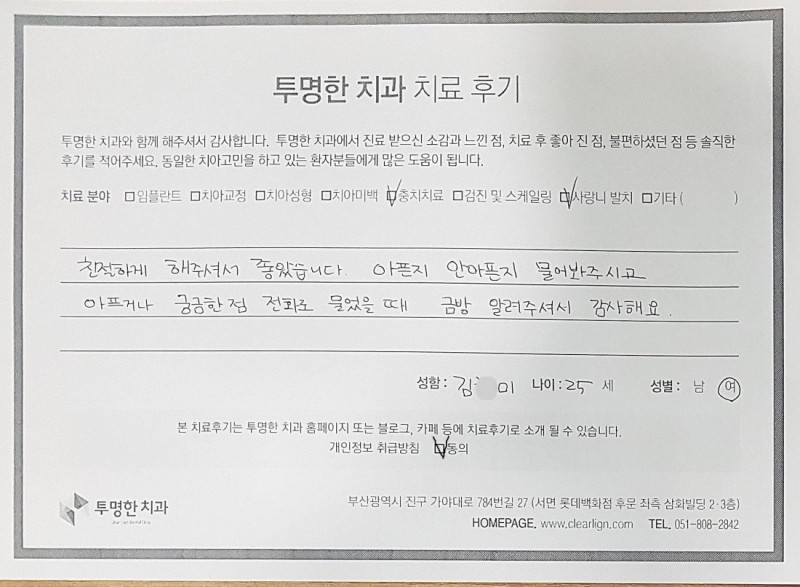 투명한 치과 치료 후기
투명한 치과와 함께 해주셔서 감사합니다. 투명한 치과에서 진료 받으신 소감과 느낀 점, 치료 후 좋아 진 점, 불편하셨던 점 등 솔직한
후기를 적어주세요. 동일한 치아고민을 하고 있는 환자분들에게 많은 도움이 됩니다.
치료 분야 □임플란트 □치아교정 □치아성형 □치아미백 ☑충치치료 □검진 및 스케일링 ☑사랑니 발치 □기타 ( )
친절하게 해주셔서 좋았습니다. 아픈지 안아픈지 물어봐주시고
아프거나 궁금한점 전화로 물었을때 금방 알려주셔서 감사해요.
성함 : 김 미 나이 : 25 세 성별 : 남 여
본 치료후기는 투명한 치과 홈페이지 또는 블로그, 카페 등에 치료후기로 소개 될 수 있습니다.
개인정보 취급방침 ☑동의
투명한 치과
부산광역시 진구 가야대로 784번길 27 (서면 롯데백화점 후문 좌측 삼화빌딩 2·3층)
HOMEPAGE. www.clearlign.com TEL. 051-808-2842